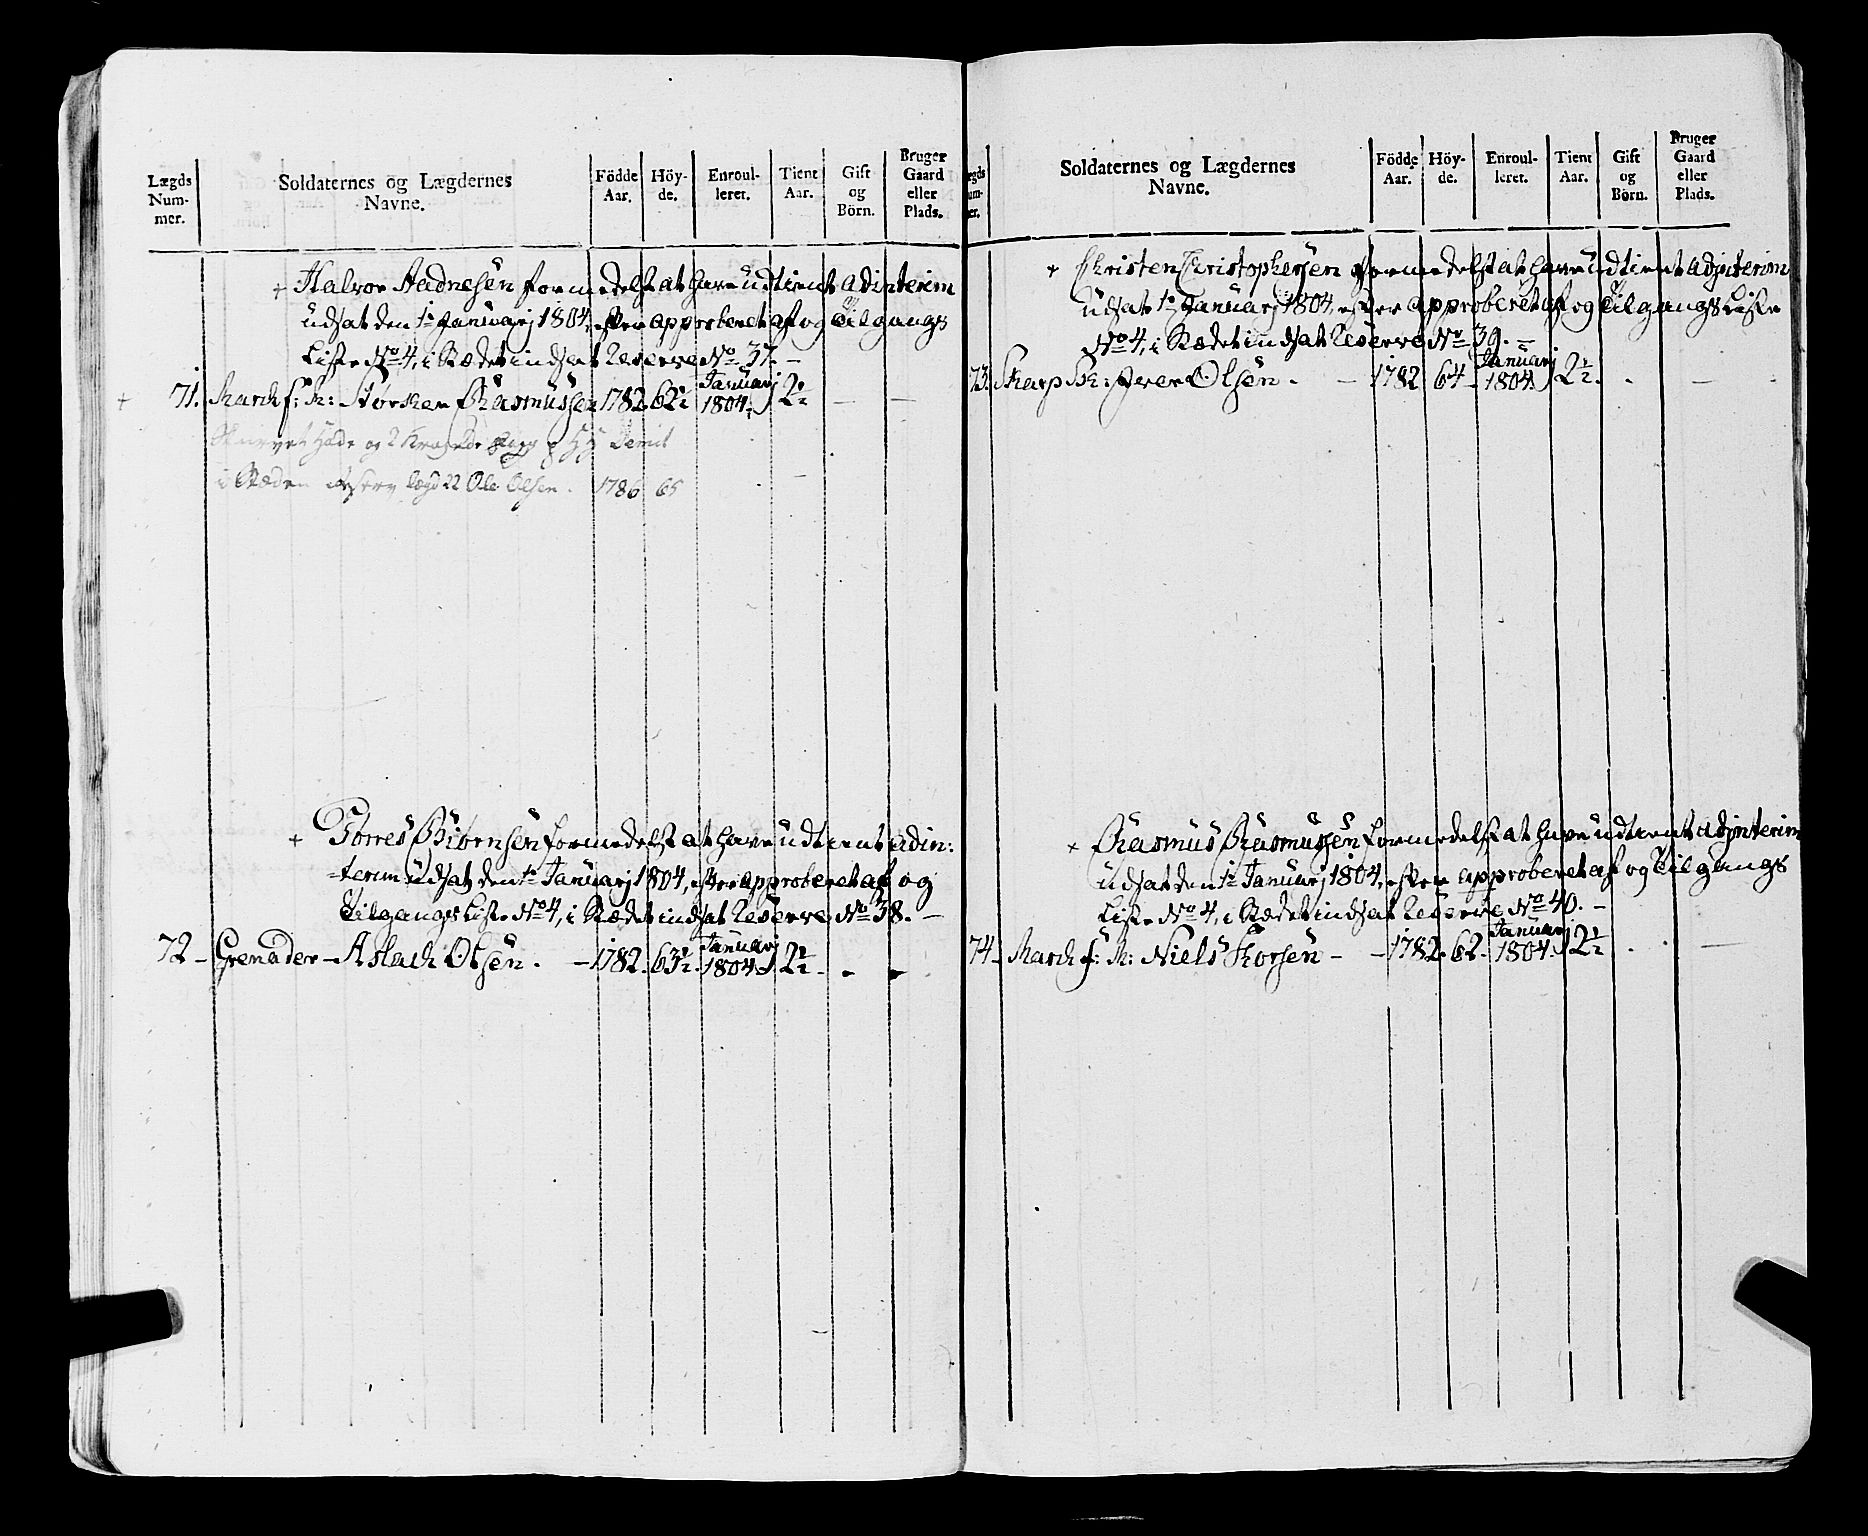 Lægds Num- mer. Soldaternes og Lægdernes Navne. Födde Aar. Höy- de. Enroul- leret. Tient Aar. Gift og Börn. Bruger Gaard eller Plads.
+ Halvor Aadnesen formedelst at have udtient adinterim
udsat den 1te Januarj 1804, efter approberet af og Tilgangs
Liste No 4, i Stædet indsat Reserve No 37. –
+ 71. March f: K: Størcker Rasmussen 1782. 62½ Januarj 1804. 2½ – –
Skurvet Hode og 2 Demit
i Stæden Reserv Lægd 22 Ole Olsen. 1786 65
+ Torres Biörnsen formedelst at have udtient adin:
=terim udsat den 1te Januarj 1804, efter approberet af og
Tilgangs Liste No 4, i Stædet indsat Reserve No 38. –
72 – Grenader – Aslach Olsen. – 1782. 63½. Januarj 1804. 2½ - . -
Lægds Num- mer. Soldaternes og Lægdernes Navne. Födde Aar. Höy- de. Enroul- leret. Tient Aar. Gift og Börn. Bruger Gaard eller Plads.
+ Christen Christophersen formedelst at have udtient adjnterim
udsat 1te Januarj 1804, efter approberet af og Tilgangs Liste
No 4, i Stædet indsat Reserve No 39. –
73. Skarp Sk: Iver Olsen. – 1782 64 – Januarj 1804. 2½. . –
+ Rasmus Rasmussen formedelst at have udtient adjnterim
udsat den 1te Januarj 1804, efter approberet af og Tilgangs
Liste No 4, i Stædet indsat Reserve No 40. –
74 – March f: K: Niels Torsen – – 1782. 62 – Januarj 1804. 2½ . . –